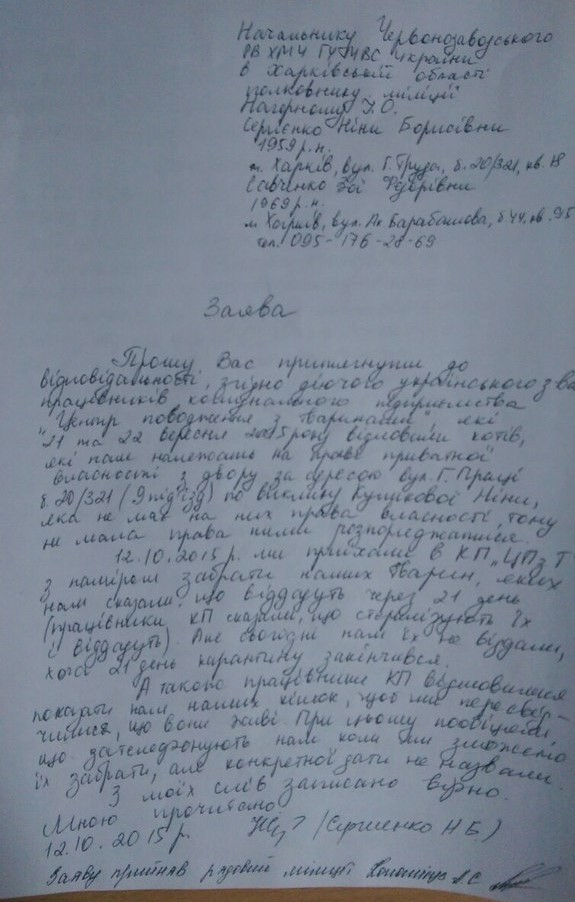 Начальнику Червонозаводського
РВ ХМУ ГУМВС України
в Харківській області
полковнику міліції
Нагорному І.О.
Сергієнко Ніни Борисівни
1959 р.н.
м. Харків, вул. Г. Труда, б. 20/321, кв. 18
Савченко Зої Федорівни
1969 р.н.
м Харків, вул. Ак Барабашова, б 44, кв. 95
тел. 095-176-28-69
Заява
Прошу Вас притягнути до
відповідальності, згідно діючого українського зва
працівників комунального підприємства
"Центр поводження з тваринами" які
21 та 22 вересня 2015 року відловили котів,
які нам належать на праві приватної
власності з двору за адресою вул. Г. Праці
б. 20/321 (9 під'їзд) по виклику Ніни,
яка не має на них права власності, тому
не мала права ними розпоряджатися.
12.10.2015 р. ми приїхали в КП „ЦПзТ
з наміром забрати наших тварин, яких
нам сказали, що віддадуть через 21 день
(працівники КП сказали, що стерилізують їх
і віддадуть). Але сьогодні нам їх не віддали,
хоча 21 день карантину закінчився.
А також працівники КП відмовилися
показати нам наших кішок, щоб ми пересвід-
чилися, що вони живі. При цьому пообіцяли,
що зателефонують нам коли ми зможемо
їх забрати, але конкретної дати не назвали.
З моїх слів записано вірно.
Мною прочитано
12.10.2015 р. (Сергиенко Н Б)
Заяву прийняв рядовий міліції А.С